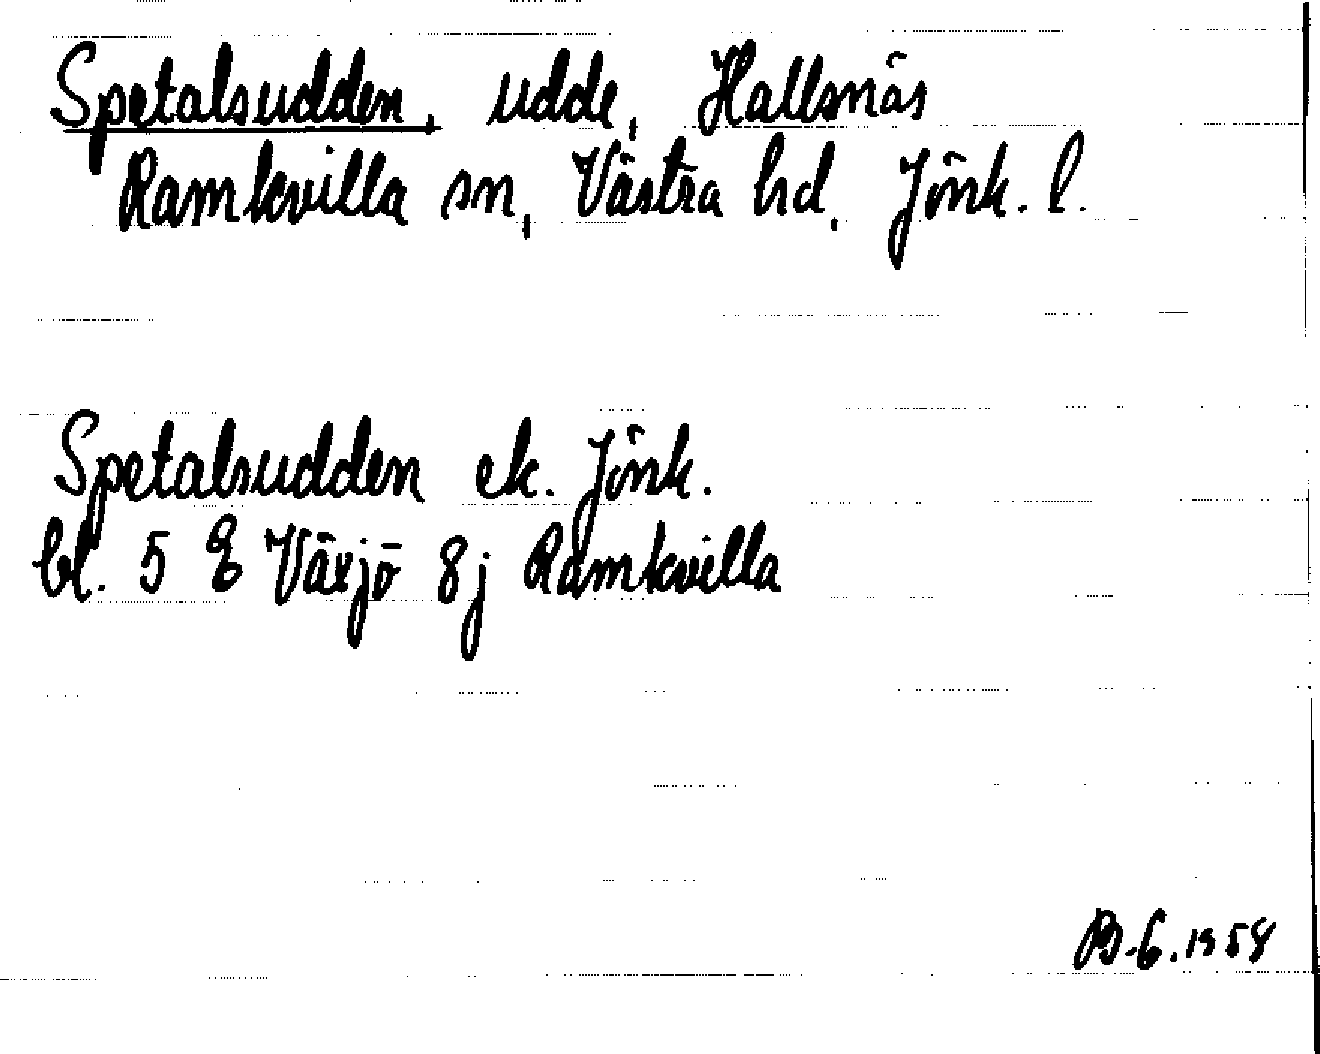 Spetalsudden, udde, Hallsnäs
Ramkvilla sn, Västra hd, Jönk. l.
Spetalsudden ek. Jönk.
bl. 5 E Växjö 8j Ramkvilla
B-G. 1958